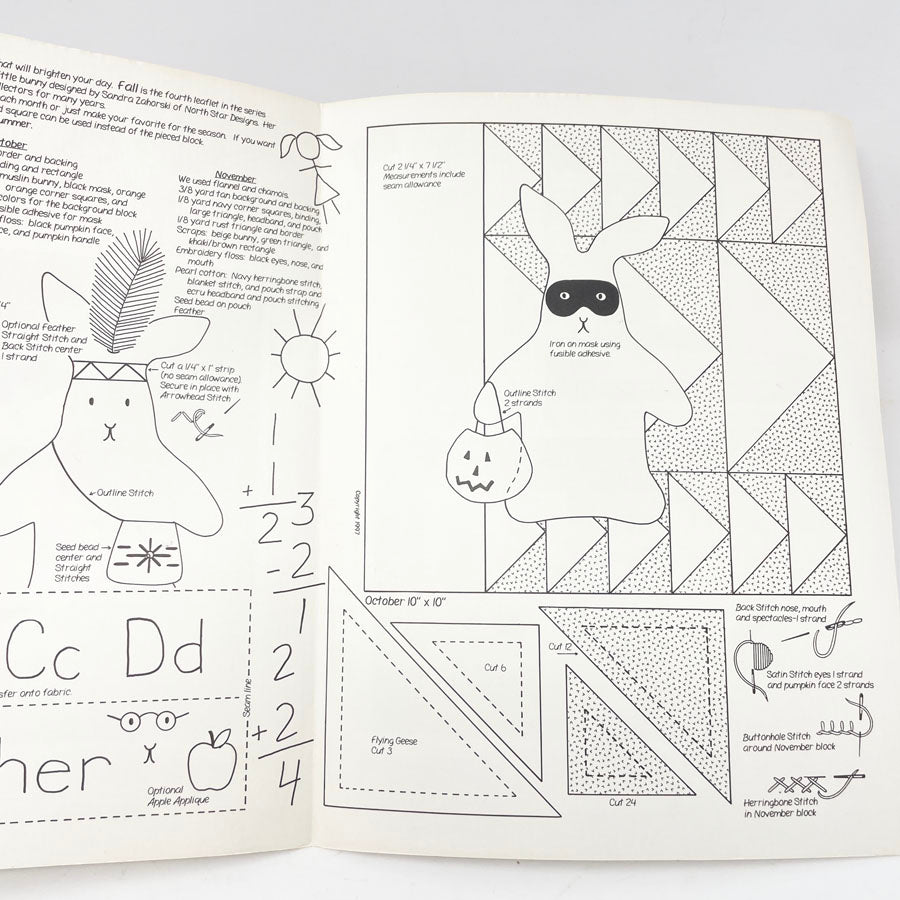 hat will brighten your day. Fall is the fourth leaflet in the series
ittle bunny designed by Sandra Zahorski of North Star Designs. Her
llectors for many years.
ach month or just make your favorite for the season. If you want
d square can be used instead of the pieced block.
ummer.
tober
order and backing
ding and rectangle
muslin bunny, black mask, orange
orange corner squares, and
colors for the background block
sible adhesive for mask
floss: black pumpkin face,
ce, and pumpkin handle
November
We used flannel and chamois.
3/8 yard tan background and backing
1/8 yard navy corner squares, binding,
large triangle, headband, and pouch
1/8 yard rust triangle and border
Scraps: beige bunny, green triangle, and
khaki/brown rectangle
Embroidery floss: black eyes, nose, and
mouth
Pearl cotton: Navy herringbone stitch,
blanket stitch, and pouch strap and
ecru headband and pouch stitching
Seed bead on pouch
Feather
/4"
Optional Feather
Straight Stitch and
Back Stitch center
1 strand
Cut a 1/4" x 1" strip
(no seam allowance).
Secure in place with
Arrowhead Stitch
Outline Stitch
Seed bead
center and
Straight
Stitches
1
+ 1
2
3
-2
1
2
+ 2
4
Cc Dd
sfer onto fabric.
Seam line
her
Optional
Apple Applique
Copyright 1997
Cut 2 1/4" x 7 1/2"
Measurements include
seam allowance
Iron on mask using
fusible adhesive.
Outline Stitch
2 strands
October 10" x 10"
Flying Geese
Cut 3
Cut 6
Cut 12
Cut 24
Back Stitch nose, mouth
and spectacles-1 strand
Satin Stitch eyes 1 strand
and pumpkin face 2 strands
Buttonhole Stitch
around November block
Herringbone Stitch
in November block